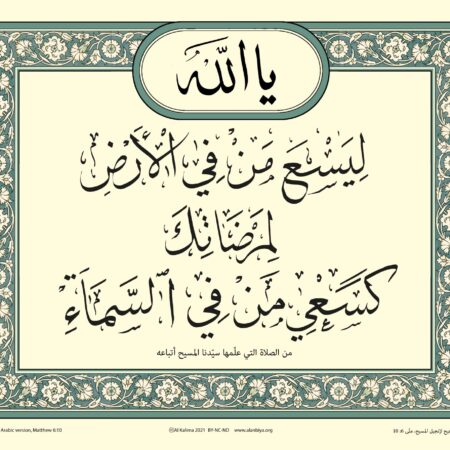 يا الله
لِيَسْعَ مَنْ فِي الْأَرْضِ
لِمَرْضَاتِكَ
كَسَعْيِ مَنْ فِي ٱلسَّمَاءِ
من الصلاة التي علّمها سيّدنا المسيح أتباعه
Arabic version, Matthew 6:10
Al Kalima 2021 BY-NC-ND www.alanbiya.org
لإنجيل المسيح، متّى